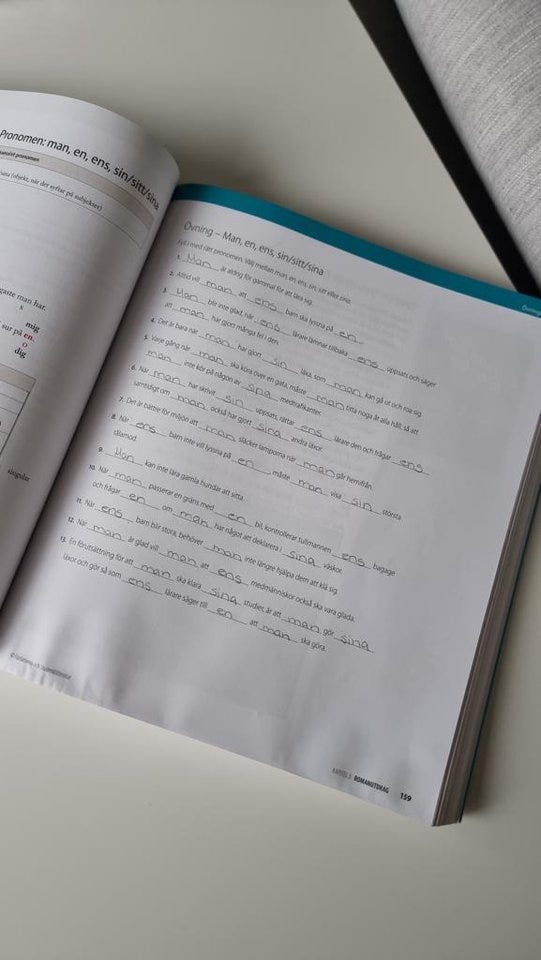 Pronomen: man, en, ens, sin/sitt/sina
(objekt, när det syftar på subjektet)
man har.
s
mig
sur på en.
O
dig
singular
Övning – Man, en, ens, sin/sitt/sina
Fyll i med rätt pronomen. Välj mellan man, en, ens, sin, sitt eller sina.
1. Man är aldrig för gammal för att lära sig.
2. Alltid vill man att ens barn ska lyssna på en.
3. Man blir inte glad, när ens lärare lämnar tillbaka ens uppsats och säger
att man har gjort många fel i den.
4. Det är bara när man har gjort sin läxa, som man kan gå ut och roa sig.
5. Varje gång när man ska köra över en gata, måste man titta noga åt alla håll, så att
man inte kör på någon av sina medtrafikanter.
6. När man har skrivit sin uppsats, rättar ens lärare den och frågar ens
samtidigt om man också har gjort sina andra läxor.
7. Det är bättre för miljön att man släcker lamporna när man går hemifrån.
8. När ens barn inte vill lyssna på en, måste man visa sin största
tålamod.
9. Man kan inte lära gamla hundar att sitta.
10. När man passerar en gräns med en bil, kontrollerar tullmannen ens bagage
och frågar en om man har något att deklarera i sina väskor.
11. När ens barn blir stora, behöver man inte längre hjälpa dem att klä sig.
12. När man är glad vill man att ens medmänniskor också ska vara glada.
13. En förutsättning för att man ska klara sina studier, är att man gör sina
läxor och gör så som ens lärare säger till en att man ska göra.
KAPITEL 3 ROMANUTDRAG 159